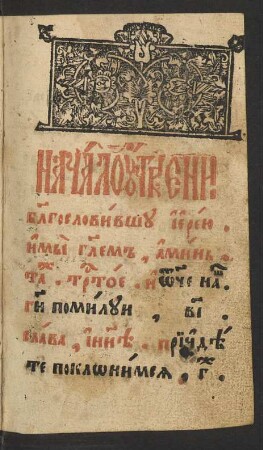 НАЧА́ЛО ОУ҆́ТРЕНИ
бл҃гослови́вшꙋ і҆ере́ю .
и҆ мы̀ гл҃емъ , а҆ми́нь .
ст҃ы́й . трⷭ҇то́е . и҆ ѿч҃е на́шъ .
гдⷭ҇и поми́лꙋи , в҃і .
сла́ва , и҆ нн҃ѣ . прїидѣ́
те поклонимсѧ , г҃ .